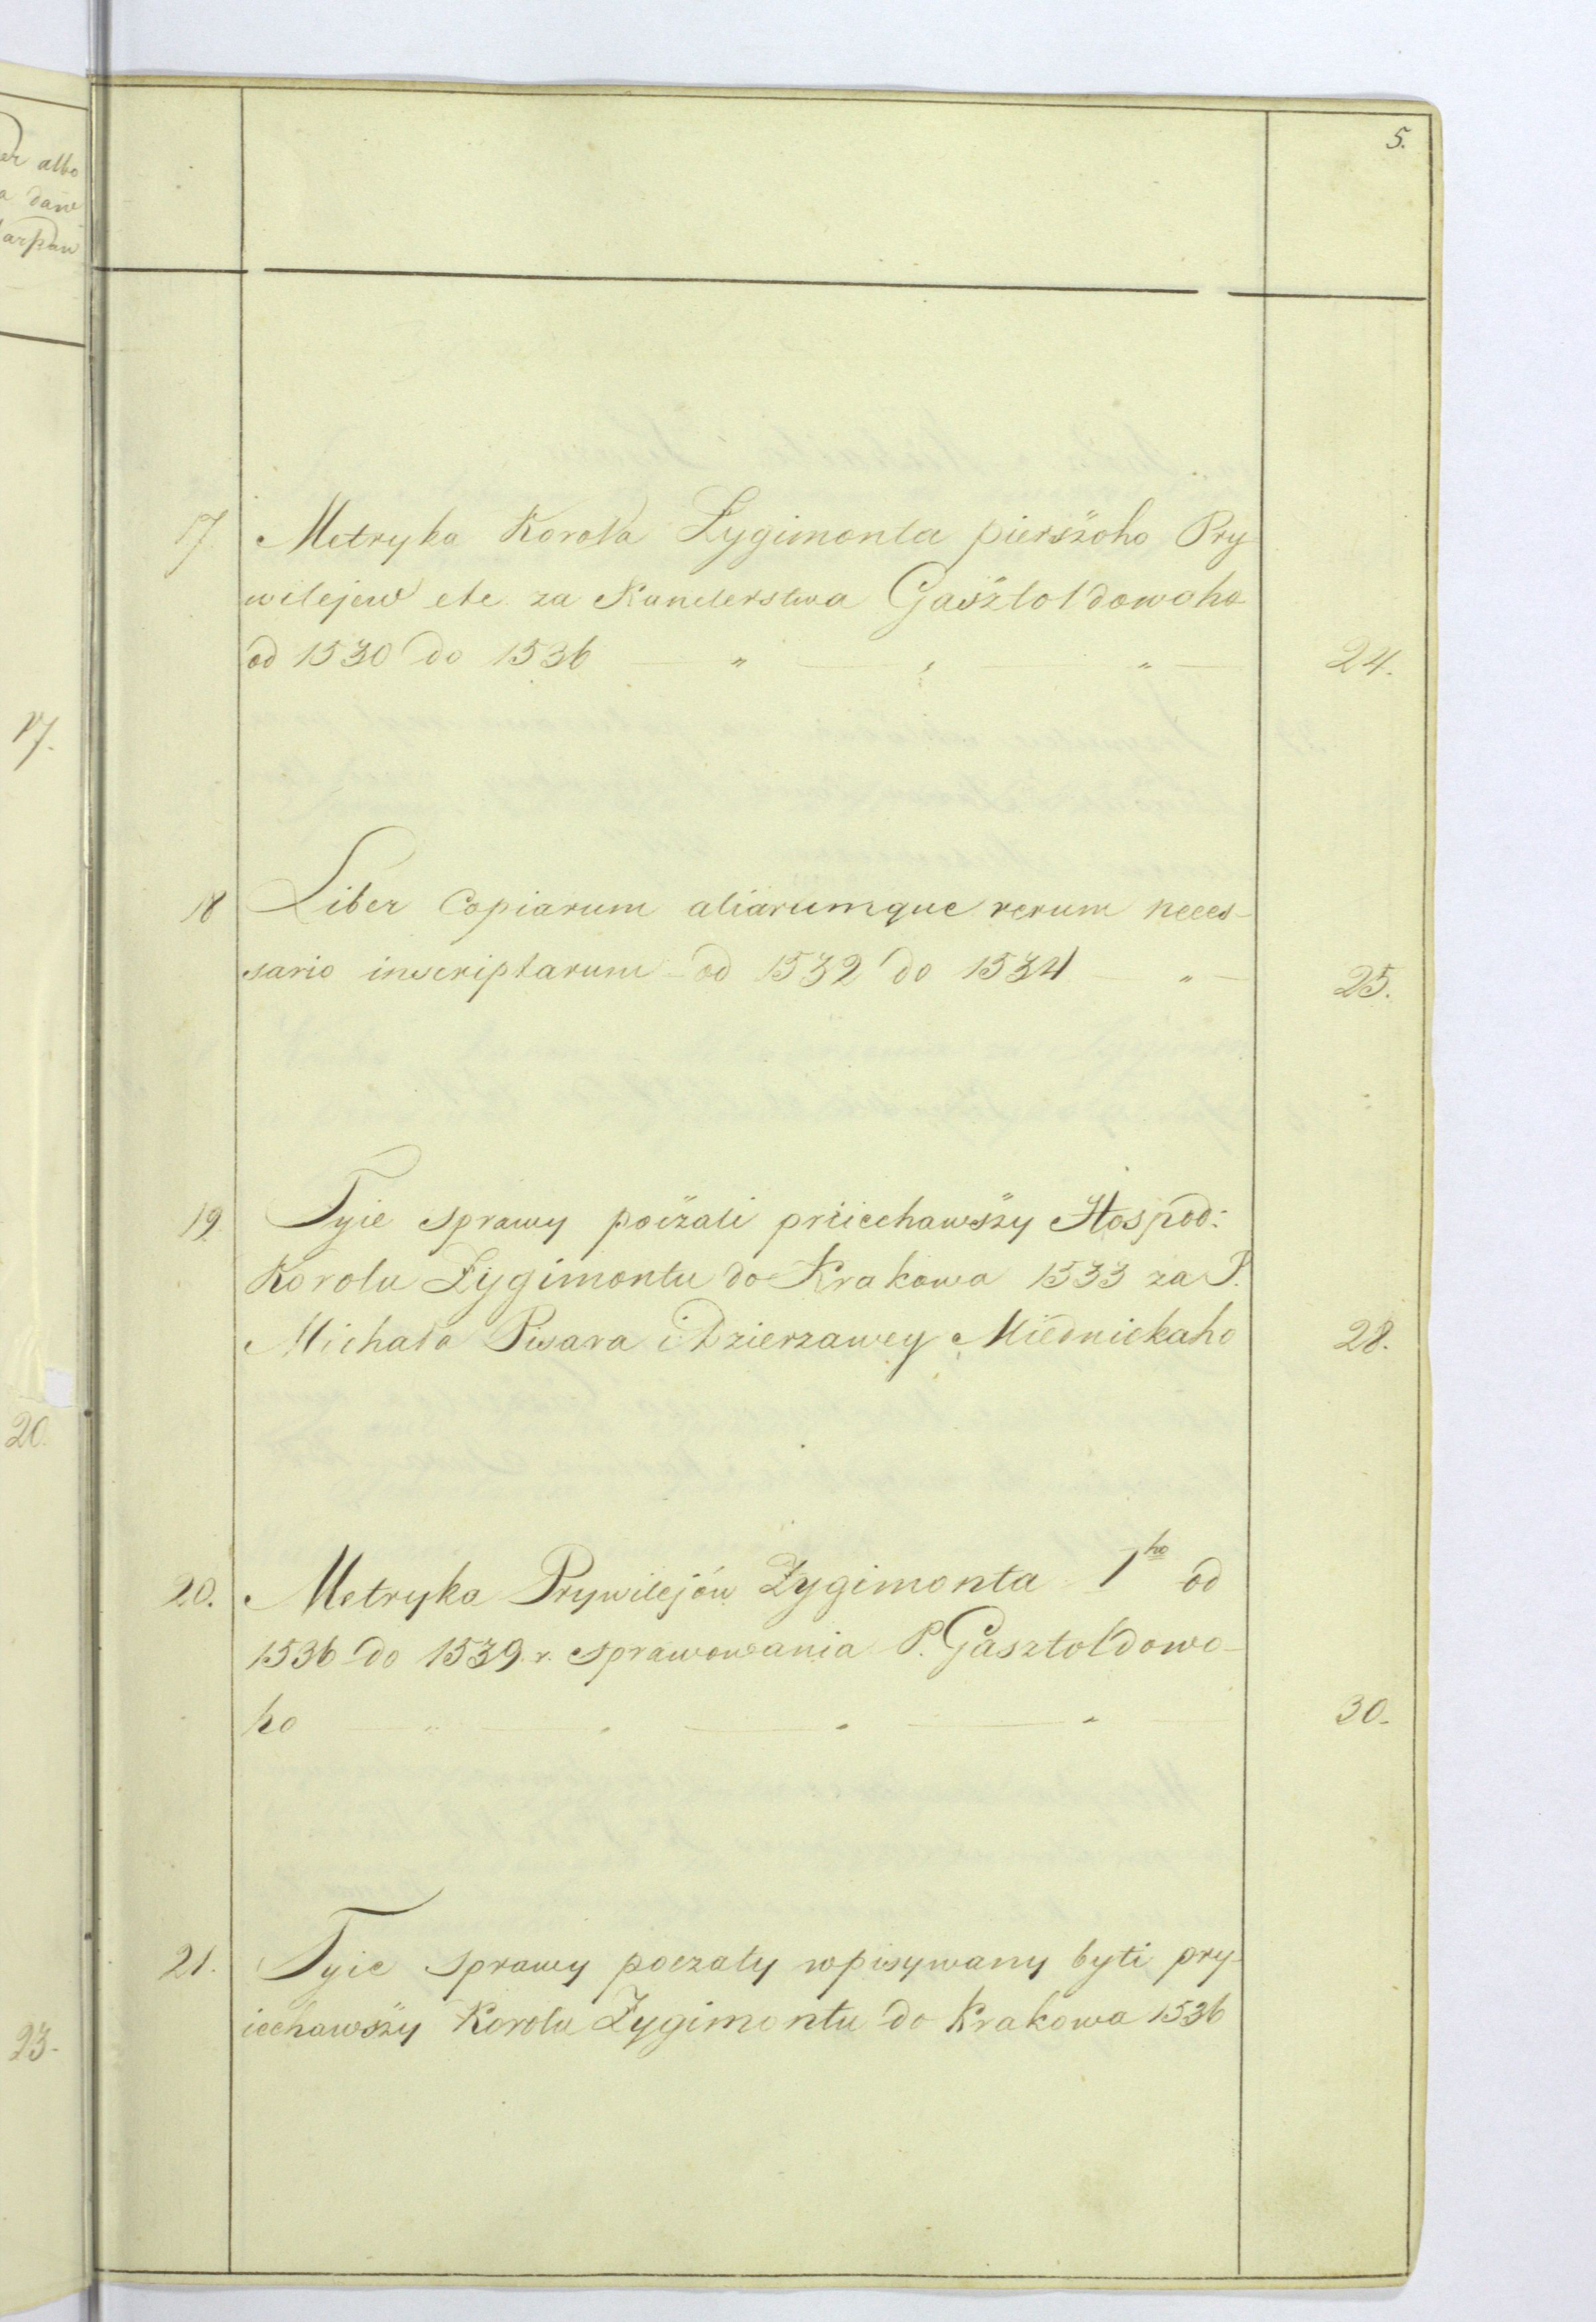 5.
er albo
a daw
17. Metryka Korola Zygimonta pierszoho Pry
wilejew etc. za Kanclerstwa Gasztoldowoho
od 1530 do 1536 — " — " — " — 24.
17.
18 Liber Copiarum aliarumque rerum neces-
sario inscriptarum od 1532 do 1534 — " — 25.
19. Tyie sprawy poczali priiechawszy Hospod:
Korolu Zygimontu do Krakowa 1533 za P.
Michała Pisara i Dzierzawcy Miednickaho 28.
20.
20. Metryka Prywilejów Zygimonta 1ho od
1536 do 1539 r. sprawowania P. Gasztoldowo-
ho — " — " — " — " — 30.
21. Tyie sprawy poczaty wpisywany byti pry-
iechawszy Korolu Zygimontu do Krakowa 1536
23.